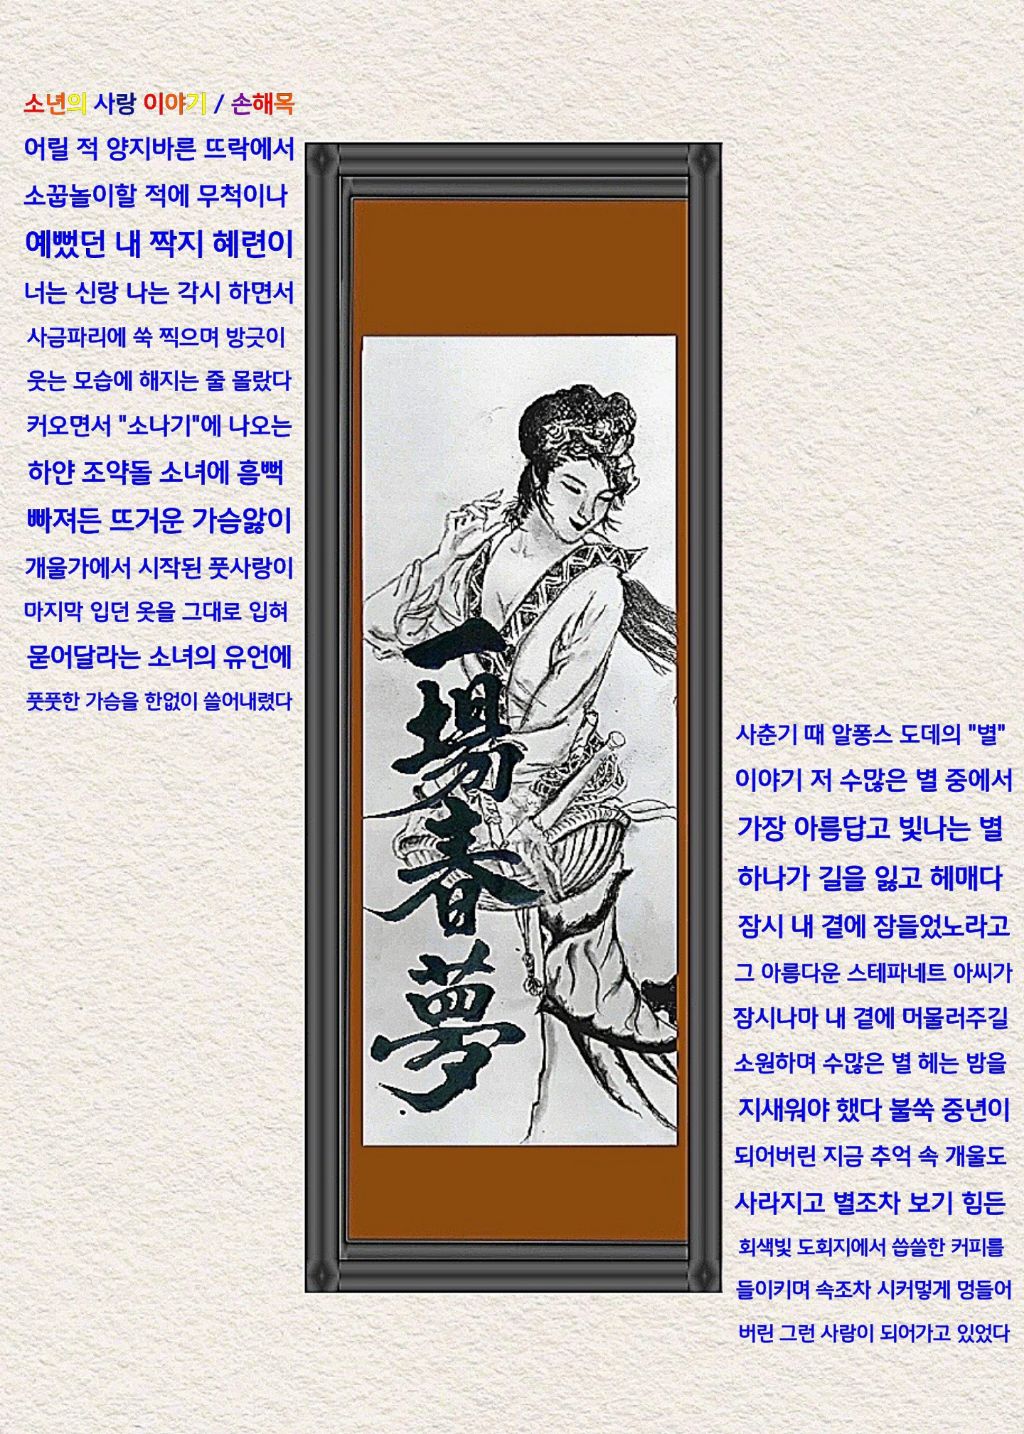 소년의 사랑 이야기 / 손해목
어릴 적 양지바른 뜨락에서
소꿉놀이할 적에 무척이나
예뻤던 내 짝지 혜련이
너는 신랑 나는 각시 하면서
사금파리에 쑥 찍으며 방긋이
웃는 모습에 해지는 줄 몰랐다
커오면서 "소나기"에 나오는
하얀 조약돌 소녀에 흠뻑
빠져든 뜨거운 가슴앓이
개울가에서 시작된 풋사랑이
마지막 입던 옷을 그대로 입혀
묻어달라는 소녀의 유언에
풋풋한 가슴을 한없이 쓸어내렸다
一
場
春
夢
사춘기 때 알퐁스 도데의 "별"
이야기 저 수많은 별 중에서
가장 아름답고 빛나는 별
하나가 길을 잃고 헤매다
잠시 내 곁에 잠들었노라고
그 아름다운 스테파네트 아씨가
잠시나마 내 곁에 머물러주길
소원하며 수많은 별 헤는 밤을
지새워야 했다 불쑥 중년이
되어버린 지금 추억 속 개울도
사라지고 별조차 보기 힘든
회색빛 도회지에서 씁쓸한 커피를
들이키며 속조차 시커멓게 멍들어
버린 그런 사람이 되어가고 있었다